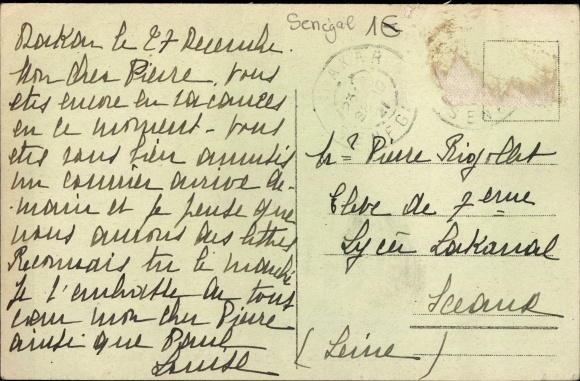 Dakar le 27 Decembre.
Mon cher Pierre, vous
etes encore en vacances
en ce moment - vous
etes vous bien amusés
un courrier arrive de-
main et je pense que
nous aurons des lettres
Reconnais tu le marché
Je t'embrasse de tout
cœur mon cher Pierre
ainsi que Paul
Louise
Senégal 1€
DAKAR
SENEGAL
Mr Pierre Rigollet
Eleve de 7eme
Lycée Lakanal
Sceaux
(Seine)